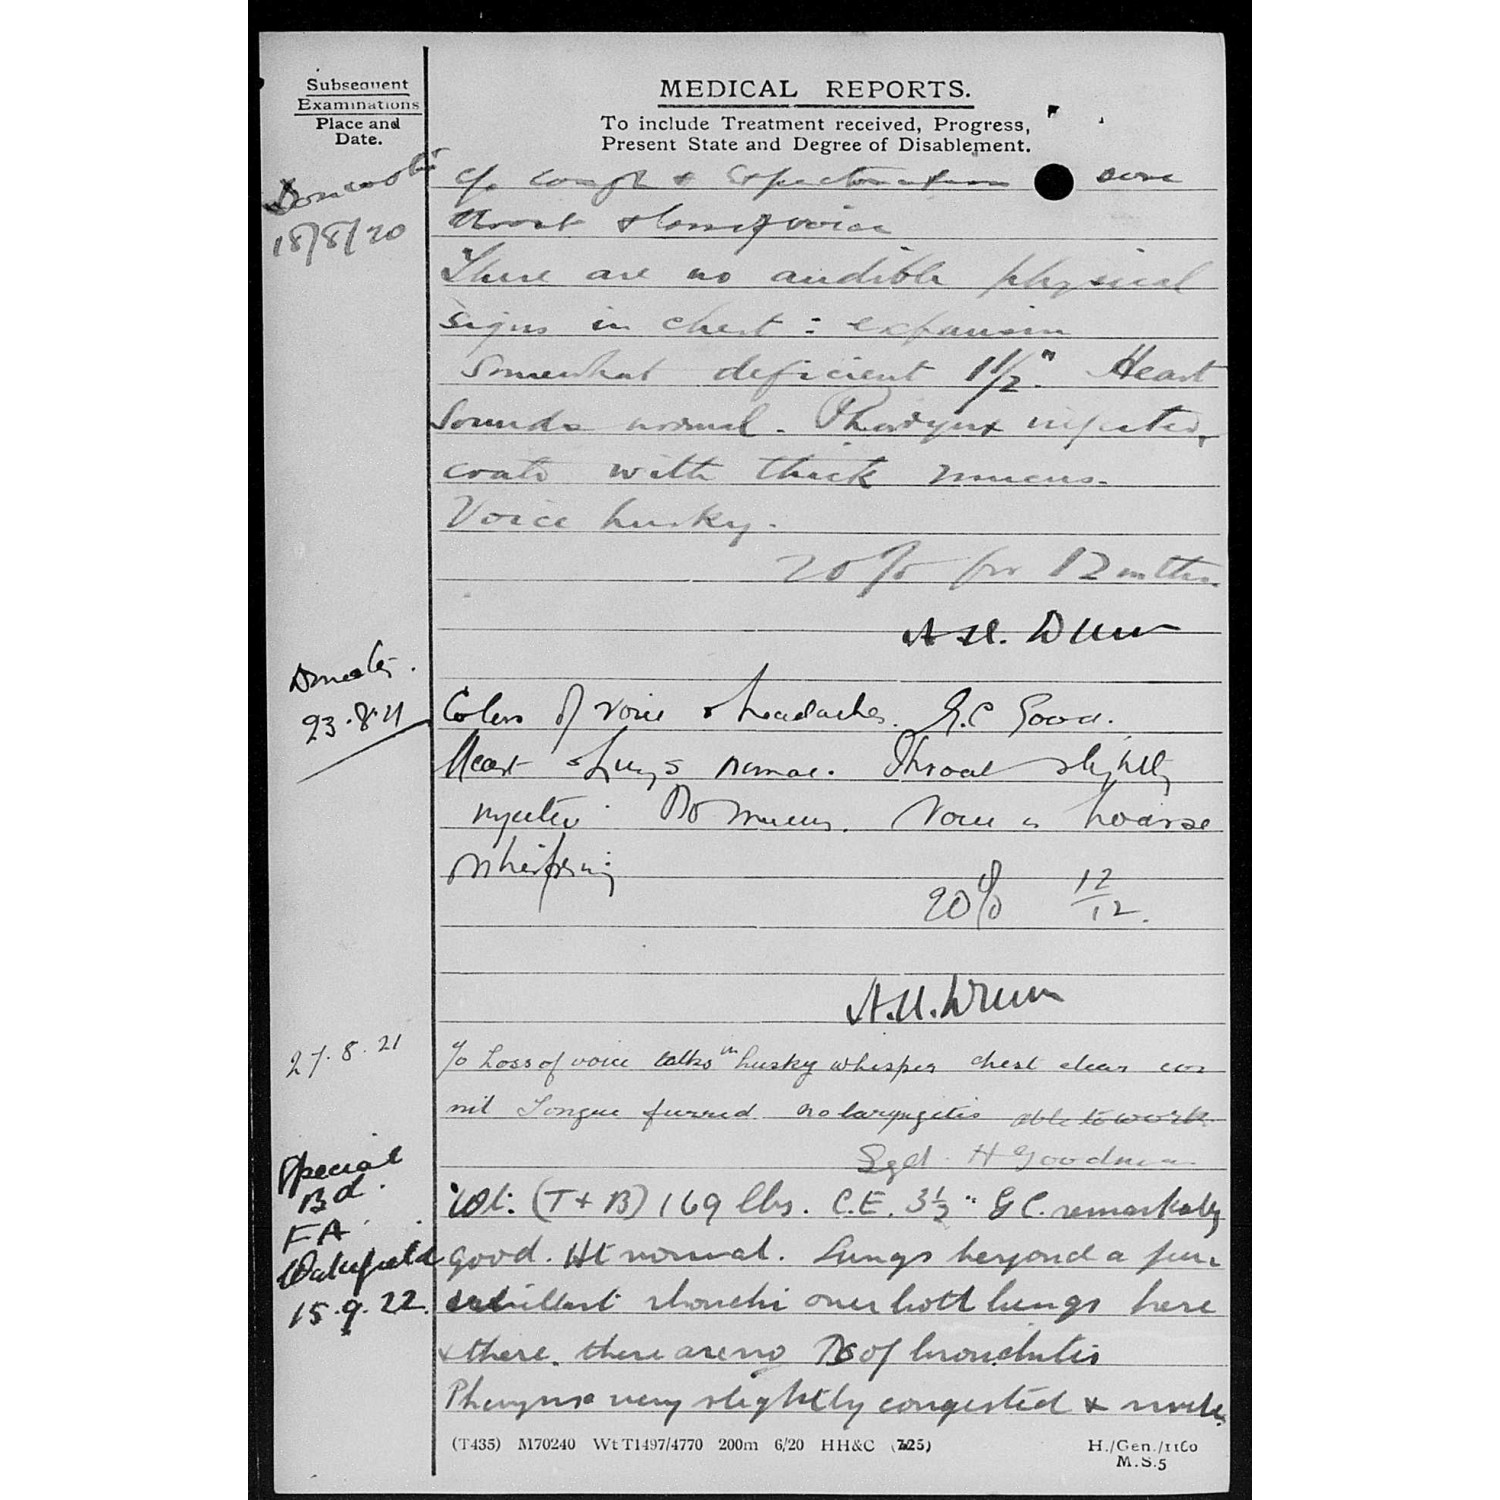 Subsequent
Examinations
Place and
Date.
MEDICAL REPORTS.
To include Treatment received, Progress,
Present State and Degree of Disablement.
Doncaster
18/8/20
c/o cough & Expectoration sore
throat & loss of voice
There are no audible physical
signs in chest: expansion
somewhat deficient 1 1/2". Heart
sounds normal. Pharynx injected,
coated with thick mucus.
Voice husky.
20% for 12 mths.
A. H.
Doncaster.
23.8.21
Co loss of voice & headaches. G.C Good.
Heart & Lungs normal. Throat slightly
injected No mucus. Voice is hoarse
whispering
20% 12/12.
A. H.
27.8.21
c/o Loss of voice talks in husky whisper chest clear cor
nil Tongue furred no laryngitis able to work
Sgd. H Goodman
Special
Bd.
F A
Wakefield
15.9.22.
Wt: (T + B) 169 lbs. C.E. 3 1/2" G C. remarkably
good. Ht normal. Lungs beyond a few
sibillant rhonchi over both lungs here
& there. there are no of bronchitis
Pharynx very slightly congested &
(T435) M70240 Wt T1497/4770 200m 6/20 HH&C (725)
H./Gen./1160
M.S.5